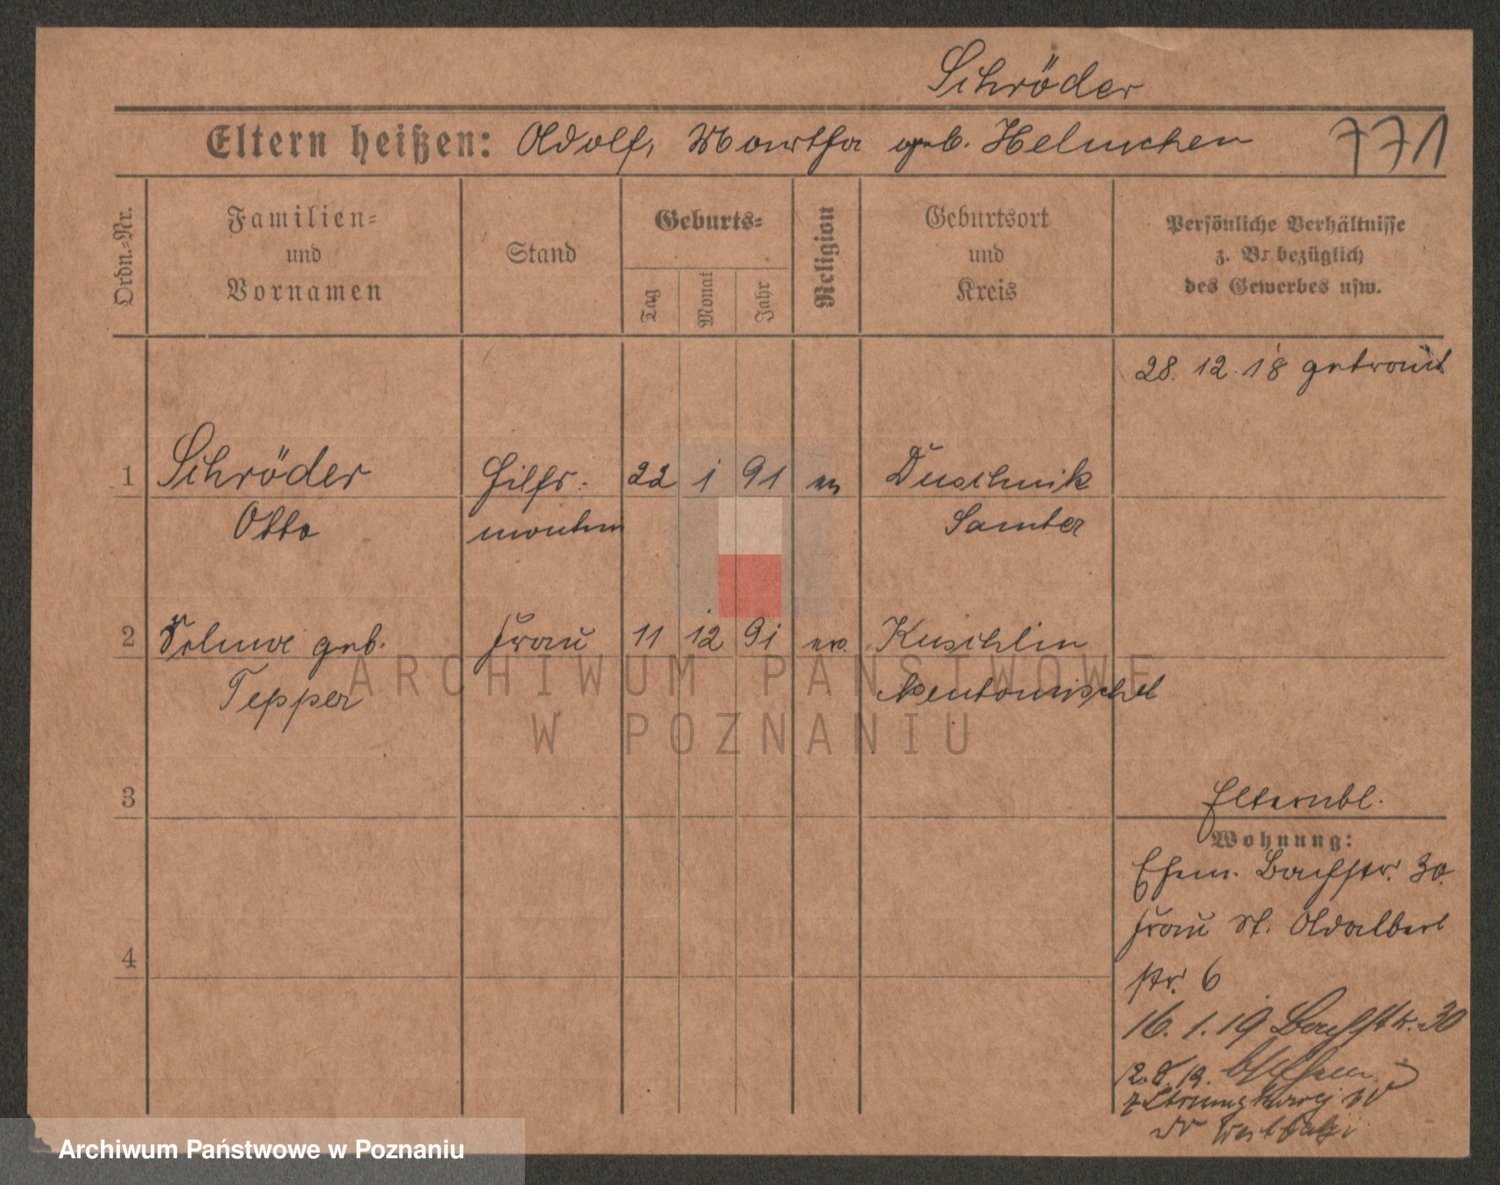 Schröder
Eltern heißen: Adolf, Martha geb. Helmchen 771
Ordn.-Nr.
Familien-
und
Vornamen
Stand
Geburts-
Tag
Monat
Jahr
Religion
Geburtsort
und
Kreis
Persönliche Verhältnisse
z. B. bezüglich
des Gewerbes usw.
28. 12. 18 getraut
1 Schröder Hilfs- 22 1 91 ev Duschnik
Otto monteur Samter
2 Selma geb. Frau 11 12 91 ev. Kuschlin
Tepper Neutomischel
ARCHIWUM PAŃSTWOWE
W POZNANIU
3
Elternbl.
Wohnung:
Ehem. Bachstr. 30.
Frau St. Adalbert
4
str. 6
16. 1. 19 Bachstr. 30
12. 8. 19.
Archiwum Państwowe w Poznaniu